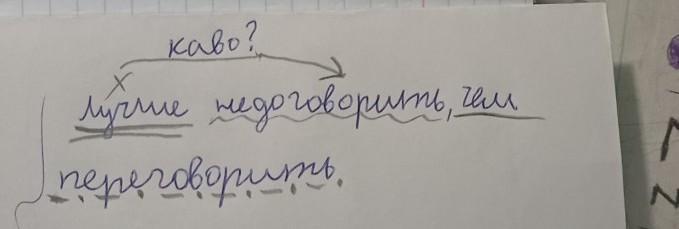 каво?
х
лучше недоговорить, чем
переговорить.